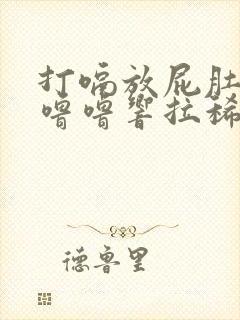 打嗝放屁肚
噜噜响拉稀
德鲁里